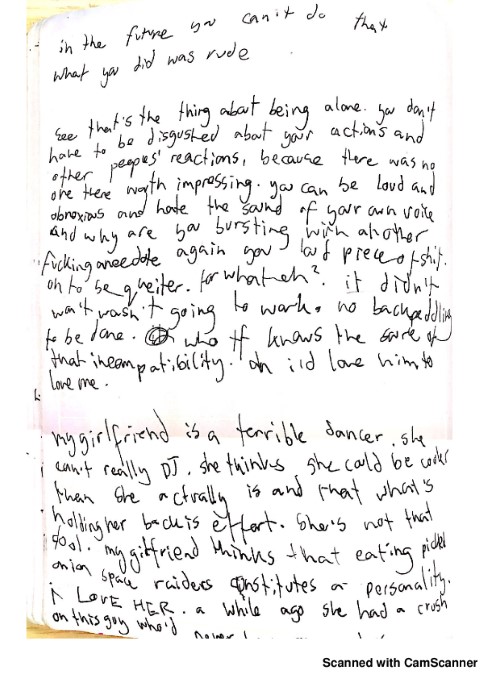 in the future you can't do that
what you did was rude
see that's the thing about being alone. you don't
have to be disgusted about your actions and
other peoples' reactions, because there was no
one there worth impressing. you can be loud and
obnoxious and hate the sound of your own voice
and why are you bursting with another
fucking anecdote again you loud piece of shit.
oh to be quieter. for what eh? it didn't
wasn't going to work. no backpeddling
to be done. who tf knows the source of
that incompatibility. oh i'd love him to
love me.
my girlfriend is a terrible dancer. she
can't really DJ. she thinks she could be cooler
than she actually is and that what's
holding her back is effort. she's not that
cool. my girlfriend thinks that eating pickled
onion space raiders constitutes a personality.
i LOVE HER. a while ago she had a crush
on this guy who'd never
Scanned with CamScanner